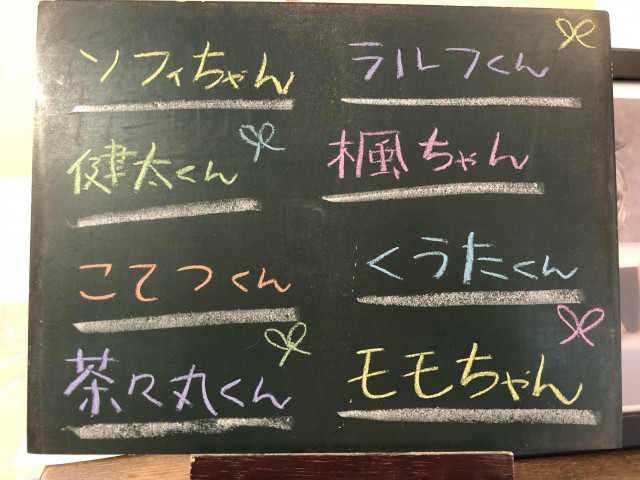 ソフィちゃん
ラルフくん
健太くん
楓ちゃん
こてつくん
くうたくん
茶々丸くん
モモちゃん